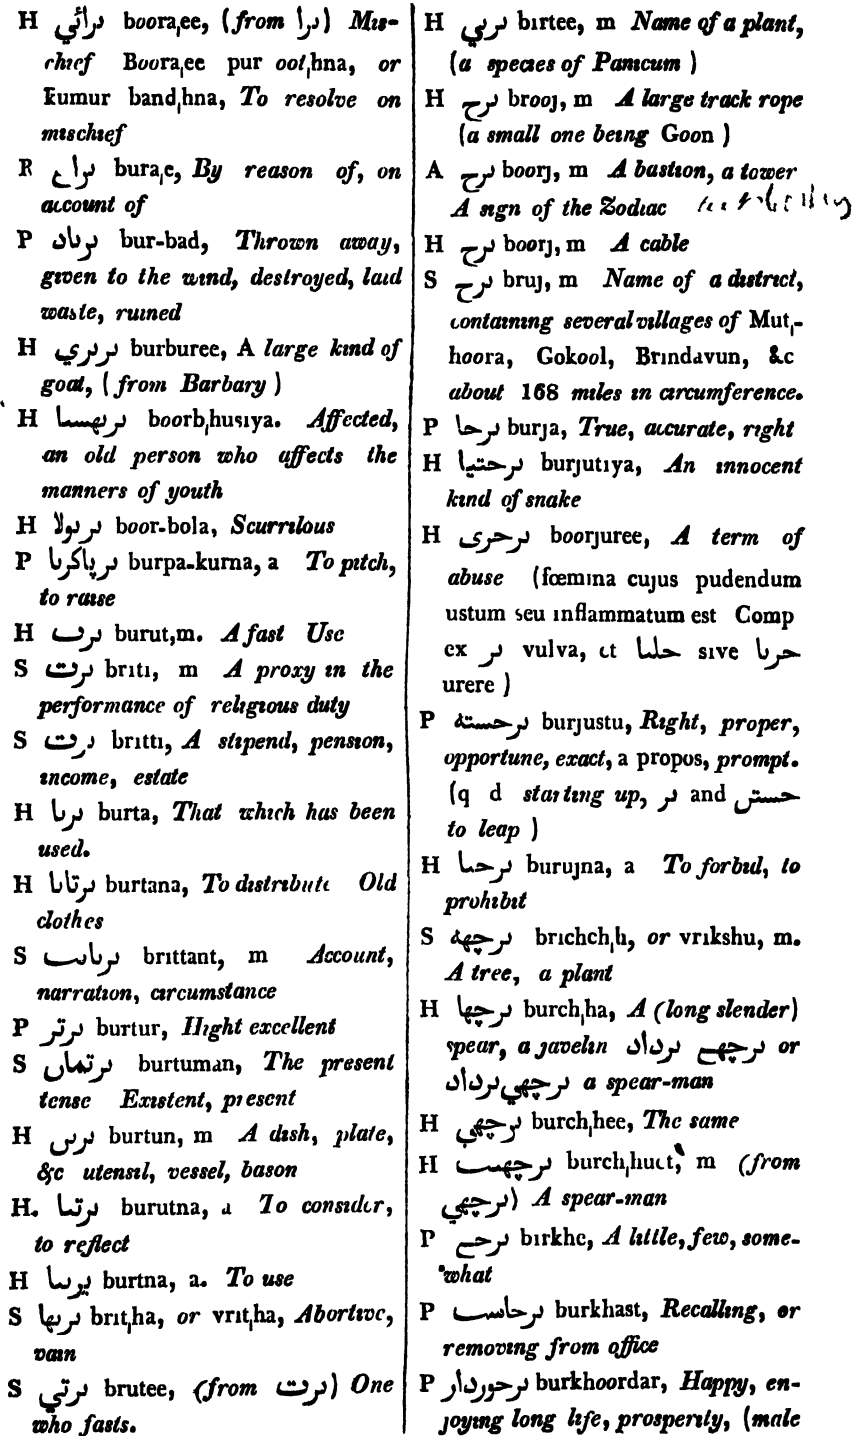 H برائي boora,ee, (from برا) Mis-
chief Boora,ee pur oot,hna, or
kumur band,hna, To resolve on
mischief
R براے bura,e, By reason of, on
account of
P برباد bur-bad, Thrown away,
given to the wind, destroyed, laid
waste, ruined
H بربري burburee, A large kind of
goat, (from Barbary)
H بربهسيا boorb,husiya. Affected,
an old person who affects the
manners of youth
H بربولا boor-bola, Scurrilous
P برپاكرنا burpa-kurna, a To pitch,
to raise
H برت burut,m. A fast Use
S برت briti, m A proxy in the
performance of religious duty
S برت britti, A stipend, pension,
income, estate
H برتا burta, That which has been
used.
H برتانا burtana, To distribute Old
clothes
S برتانت brittant, m Account,
narration, circumstance
P برتر burtur, Hight excellent
S برتمان burtuman, The present
tense Existent, present
H برتن burtun, m A dish, plate,
&c utensil, vessel, bason
H. برتنا burutna, a To consider,
to reflect
H برتنا burtna, a. To use
S برتها brit,ha, or vrit,ha, Abortive,
vain
S برتي brutee, (from برت) One
who fasts.
H برتي birtee, m Name of a plant,
(a species of Panicum)
H برج brooj, m A large track rope
(a small one being Goon)
A برج boorj, m A bastion, a tower
A sign of the Zodiac
H برج boorj, m A cable
S برج bruj, m Name of a district,
containing several villages of Mut,-
hoora, Gokool, Brindavun, &c
about 168 miles in circumference.
P برجا burja, True, accurate, right
H برجتيا burjutiya, An innocent
kind of snake
H برجري boorjuree, A term of
abuse (fœmina cujus pudendum
ustum seu inflammatum est Comp
ex بر vulva, et جلنا sive جرنا
urere)
P برجسته burjustu, Right, proper,
opportune, exact, a propos, prompt.
(q d starting up, بر and جستن
to leap)
H برجنا burujna, a To forbid, to
prohibit
S برچهه brichch,h, or vrikshu, m.
A tree, a plant
H برچها burch,ha, A (long slender)
spear, a javelin برچهے برداد or
برچهي برداد a spear-man
H برچهي burch,hee, The same
H برچهيت burch,huet, m (from
برچهي) A spear-man
P برخے birkhe, A little, few, some-
what
P برخاست burkhast, Recalling, or
removing from office
P برخوردار burkhoordar, Happy, en-
joying long life, prosperity, (male